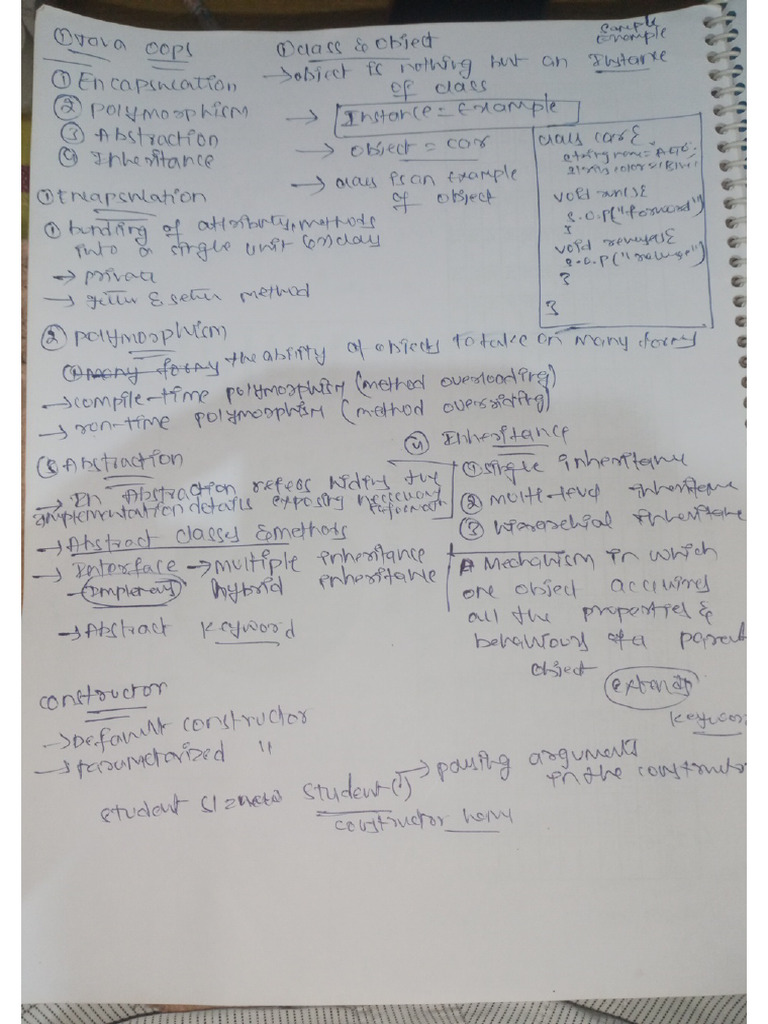 ① Java OOPS
① Encapsulation
② Polymorphism
③ Abstraction
④ Inheritance
① class & object
→ object is nothing but an Instance
of class
→ Instance = Example
→ object = car
→ class is an Example
of object
Sample
Example
class car {
void run() {
S.O.P("forward")
}
void reverse {
S.O.P("reverse")
}
}
① Encapsulation
① binding of attributes, methods
into a single unit class
→ private
→ getter & setter method
② Polymorphism
① many forms the ability of objects to take on many forms
→ compile-time polymorphism (method overloading)
→ run-time polymorphism (method overriding)
③ Abstraction
→ In Abstraction refers hiding the
implementation details exposing necessary
information
→ Abstract classes & methods
→ Interface → multiple inheritance
- Implements hybrid inheritance
→ Abstract keyword
④ Inheritance
① single inheritance
② multi-level inheritance
③ hierarchial inheritance
Mechanism in which
one object accuires
all the properties &
behaviours of a parent
object extends
keyword
constructor
→ Default constructor
→ parametarized "
student s1 = new student() → passing arguments
in the constructor
constructor name